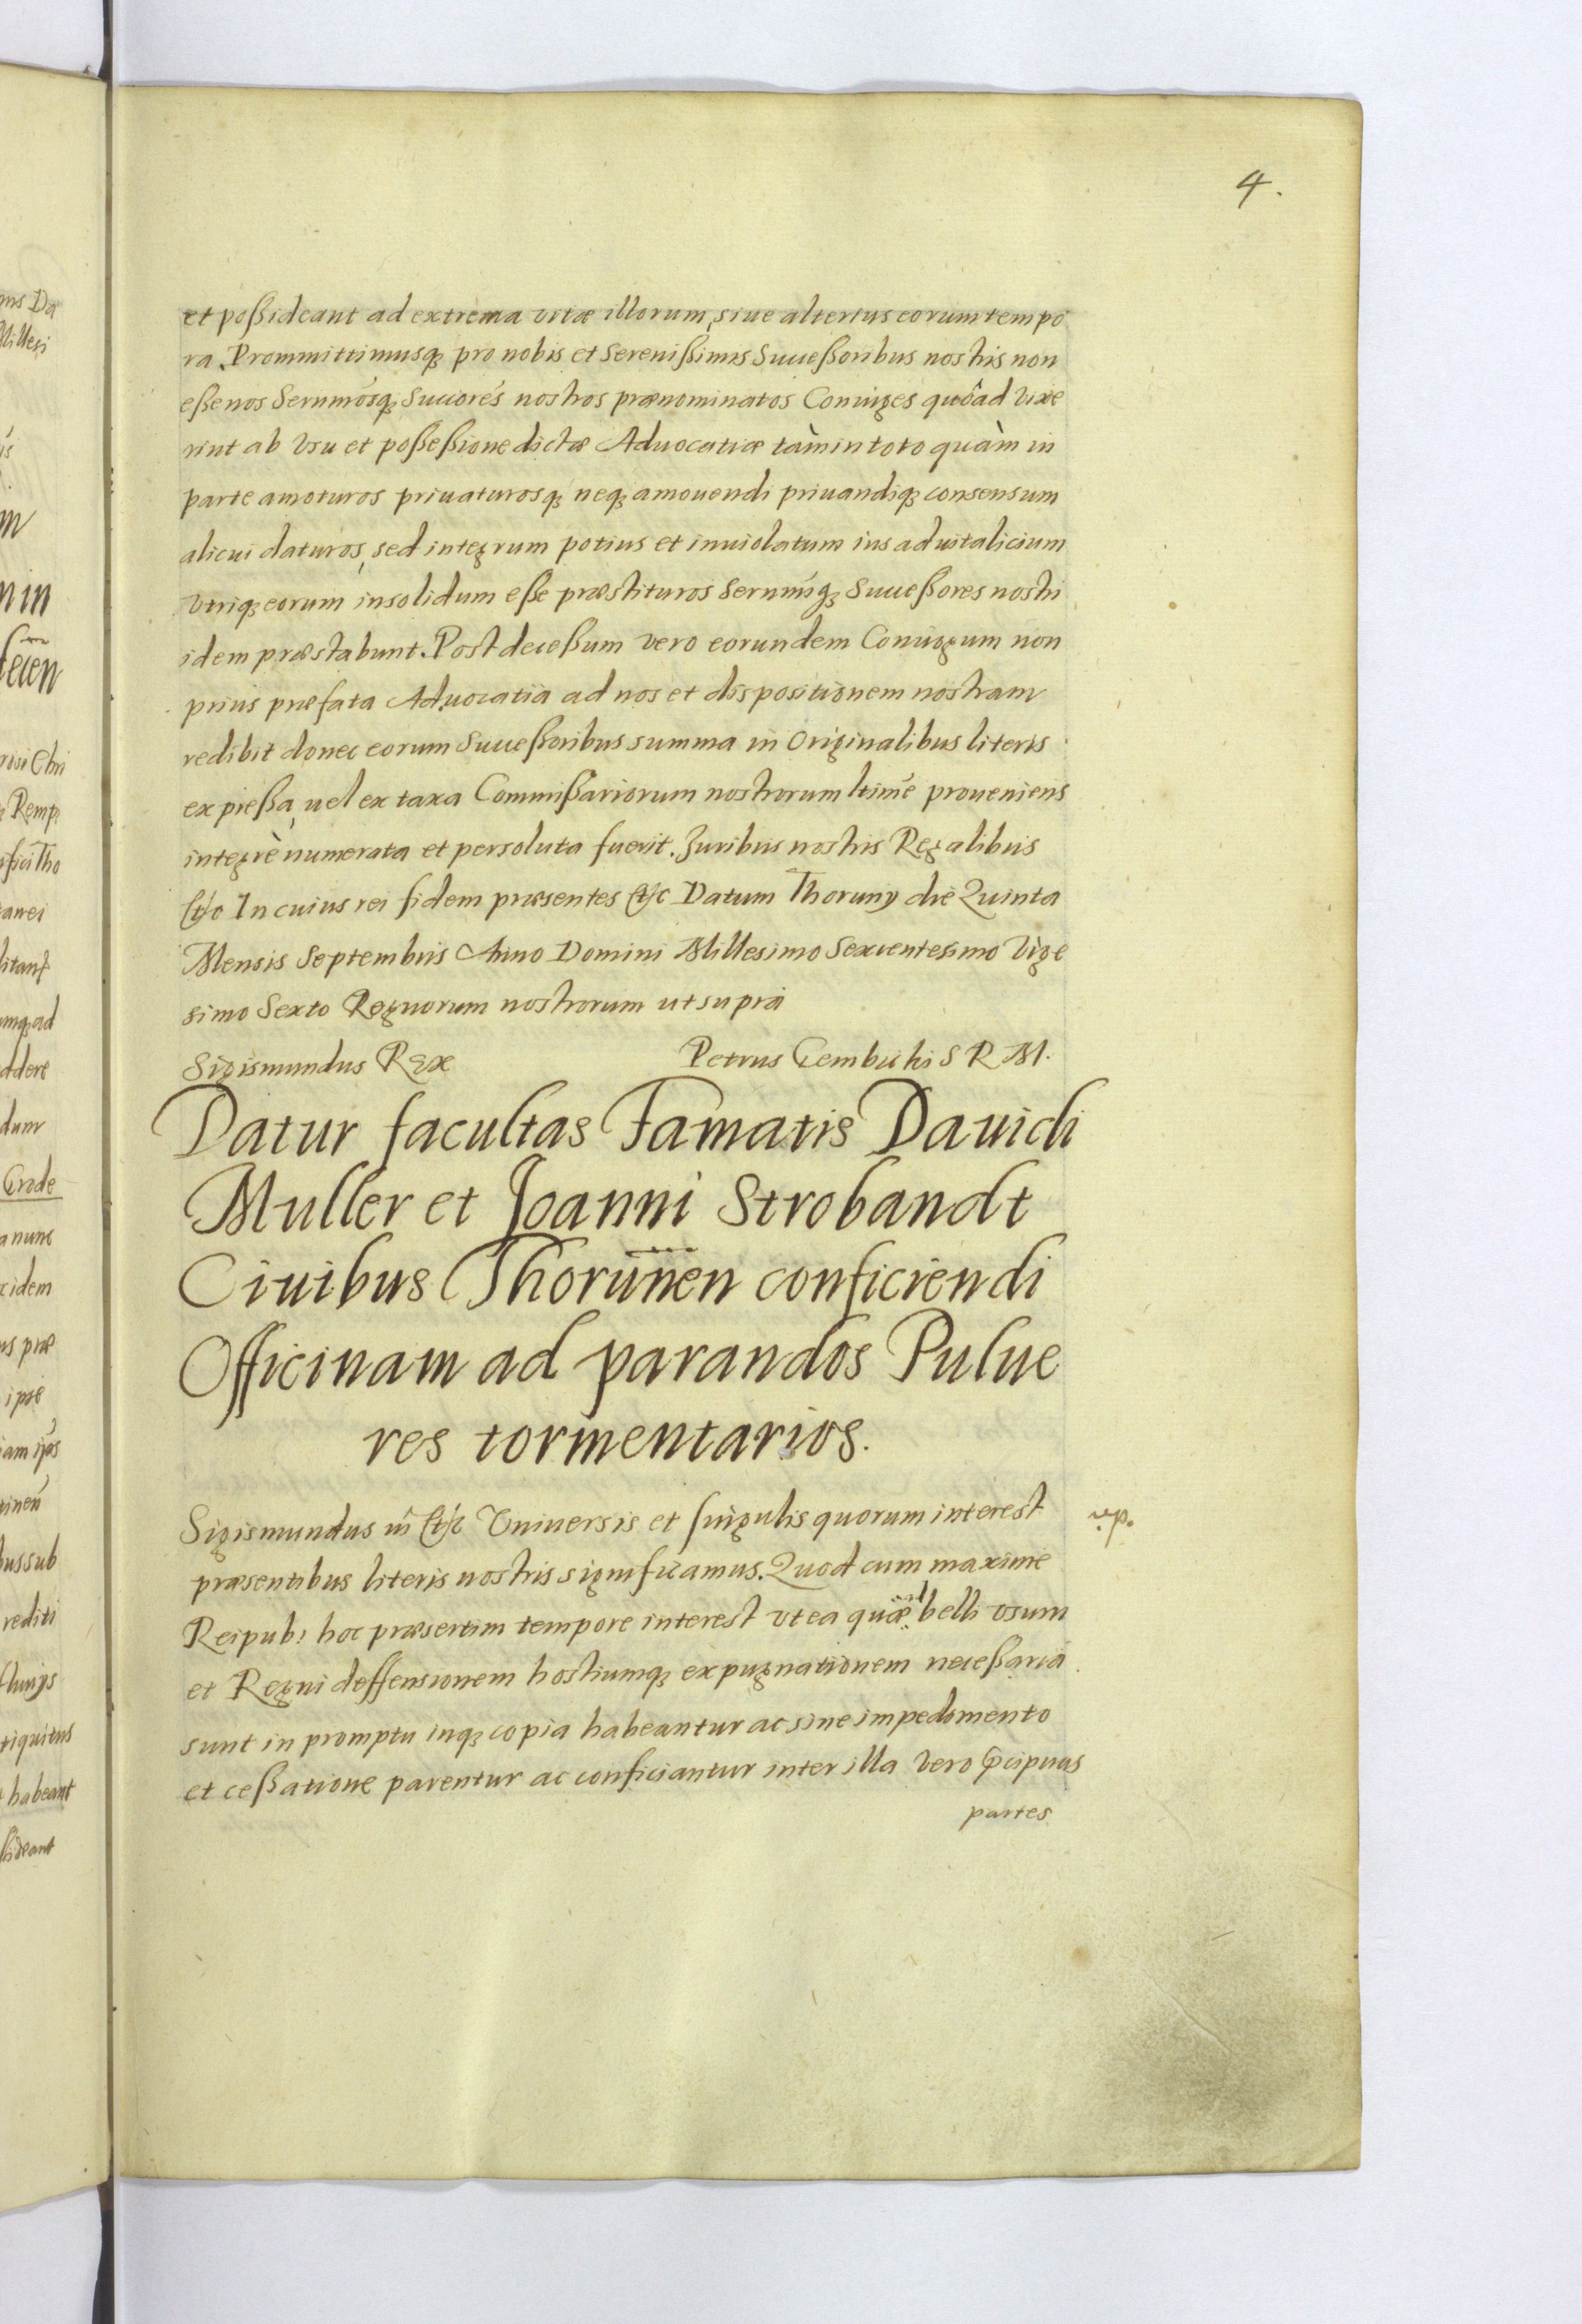 4.
et poßideant ad extrema vitæ illorum, siue alterius eorum tempo
ra. Prommittimusq₃ pro nobis et Sereniſſimis Succeßoribus nostris non
eße nos Sernmósq₃ Succorés nostros prænominatos Coniuges quoad vixe
rint ab vsu et poßeßione dictæ Aduocatiæ tàm in toto quàm in
parte amoturos priuaturosq₃ neq₃ amouendi priuandiq₃ consensum
alicui daturos, sed integrum potius et inuiolatum ius aduitalicium
vtriq₃ eorum insolidum eße præstituros Sernmíq₃ Succeßores nostri
idem præstabunt. Post deceßum vero eorundem Coniugum non
prius præfata Aduocatia ad nos et dispositionem nostram
redibit donec eorum Succeßoribus summa in Originalibus literis
expreßa, uel ex taxa Commißariorum nostrorum ltimé proueniens
integrè numerata et persoluta fuerit. Juribus nostris Regalibus
etc In cuius rei fidem præsentes etc Datum Thoruny die Quinta
Mensis Septembris Anno Domini Millesimo Sexcentesimo Vige
simo Sexto Regnorum nostrorum ut supra
Sigismundus Rex Petrus Gembicki S R M.
Datur facultas Famatis Dauidi
Muller et Joanni Strobandt
Ciuibus Thorunen conficiendi
Officinam ad parandos Pulue
res tormentarios.
Sigismundus iii etc Vniuersis et singulis quorum interest
præsentibus literis nostris significamus. Quod cum maxime
Reipub: hoc præsertim tempore interest vt ea quæ ad belli vsum
et Regni deffensionem hostiumq₃ expugnationem neceßaria
sunt in promptu inq₃ copia habeantur ac sine impedimento
et ceßatione parentur ac conficiantur inter illa vero p̃cipuas
partes